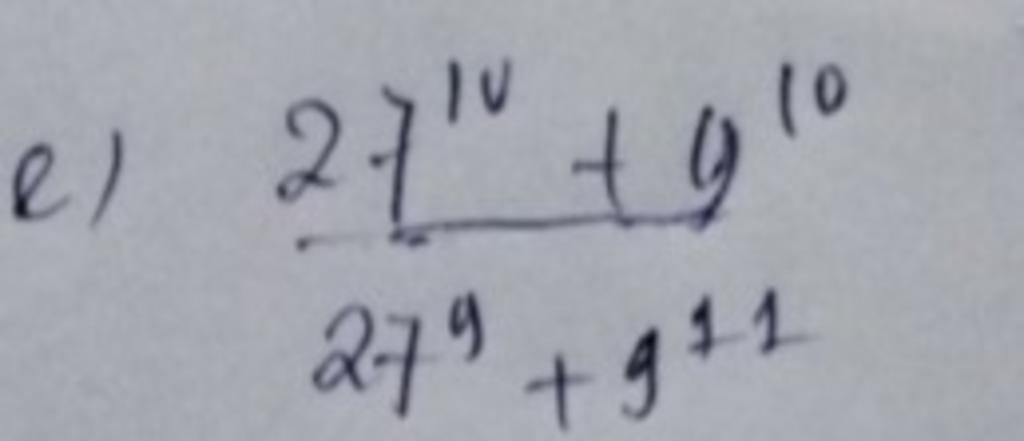 e) 27^10 + 9^10
27^9 + 9^11